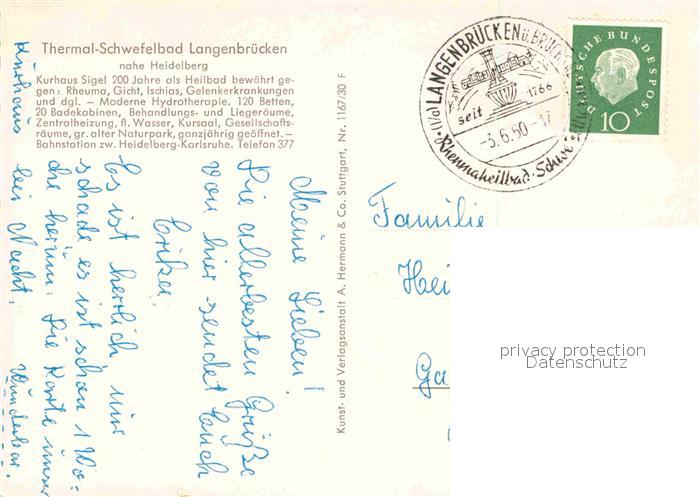 Thermal-Schwefelbad Langenbrücken
nahe Heidelberg
Kurhaus Sigel 200 Jahre als Heilbad bewährt ge-
gen: Rheuma, Gicht, Ischias, Gelenkerkrankungen
und dgl. — Moderne Hydrotherapie. 120 Betten,
20 Badekabinen, Behandlungs- und Liegeräume,
Zentralheizung, fl. Wasser, Kursaal, Gesellschafts-
räume, gr. alter Naturpark, ganzjährig geöffnet. —
Bahnstation zw. Heidelberg-Karlsruhe. Telefon 377
Meine Lieben!
Die allerbesten Grüße
von hier sendet Euch
Erika.
Es ist herrlich nur
schade es ist schon 1 Wo-
che herum. Die Karte unser
Kurhaus bei Nacht. Wunderbar.
Kunst- und Verlagsanstalt A. Hermann & Co. Stuttgart, Nr. 1167/30 F
(17a) LANGENBRÜCKEN ü. BRUCHSAL
seit 1766
-3.6.60-17
Rheumaheilbad · Schwe
DEUTSCHE BUNDESPOST
10
Familie
Hei
Ga
privacy protection
Datenschutz